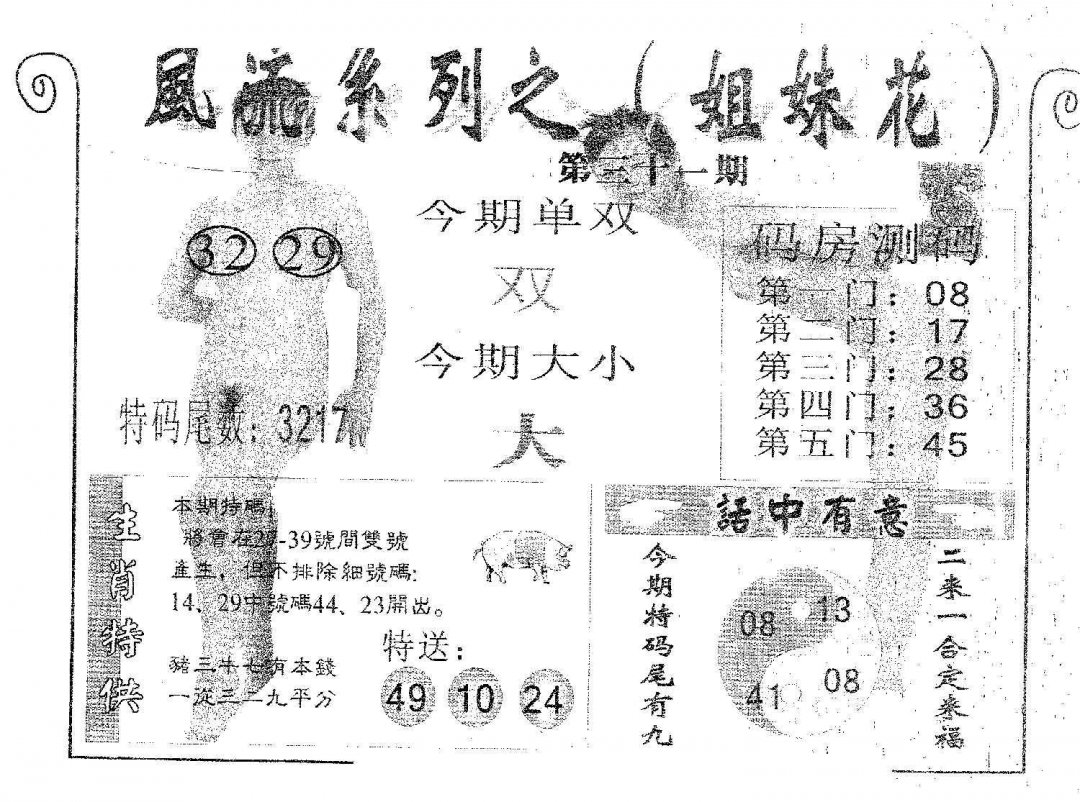 風流系列之(姐妹花)
第三十一期
32 29
今期单双
双
今期大小
大
特码尾数: 3217
码房测码
第一门: 08
第二门: 17
第三门: 28
第四门: 36
第五门: 45
生肖特供
本期特碼
將會在27-39號間雙號
產生, 但不排除細號碼:
14、29中號碼44、23開出。
豬三牛七有本錢
一從三二九平分
特送:
49 10 24
話中有意
今期特码尾有九
08 13
41 08
二来一合定来福